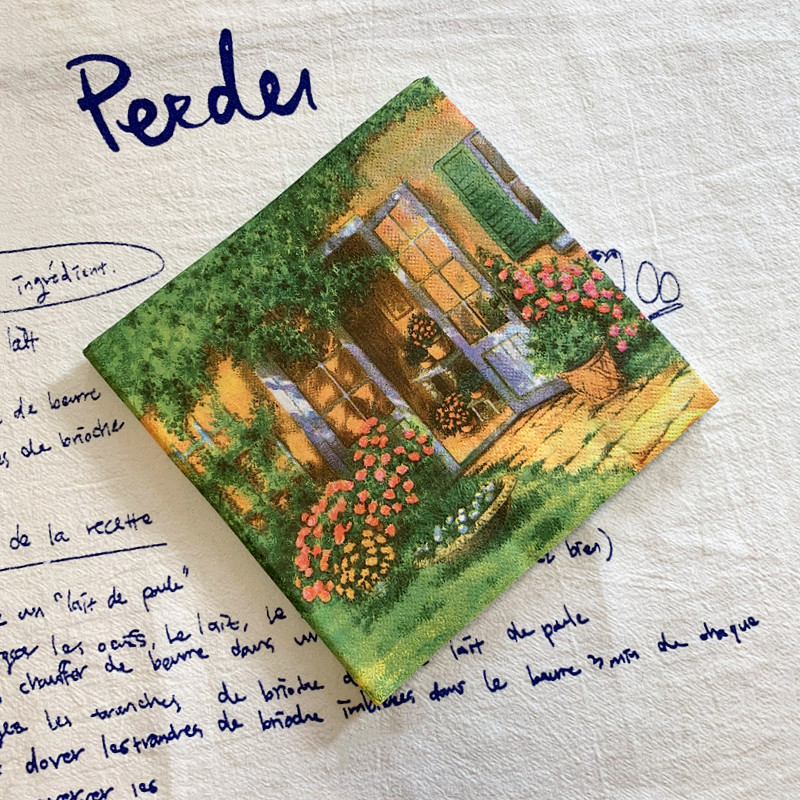 Perdu
ingrédient.
lait
de beurre
de brioche
de la recette
un "lait de poule"
les œufs, Le lait, le
chauffer de beurre dans un
les tranches de brioche d lait de poule
dorer les trandres de brioche imbibées dans le beurre 3 min de chaque
les
bien)